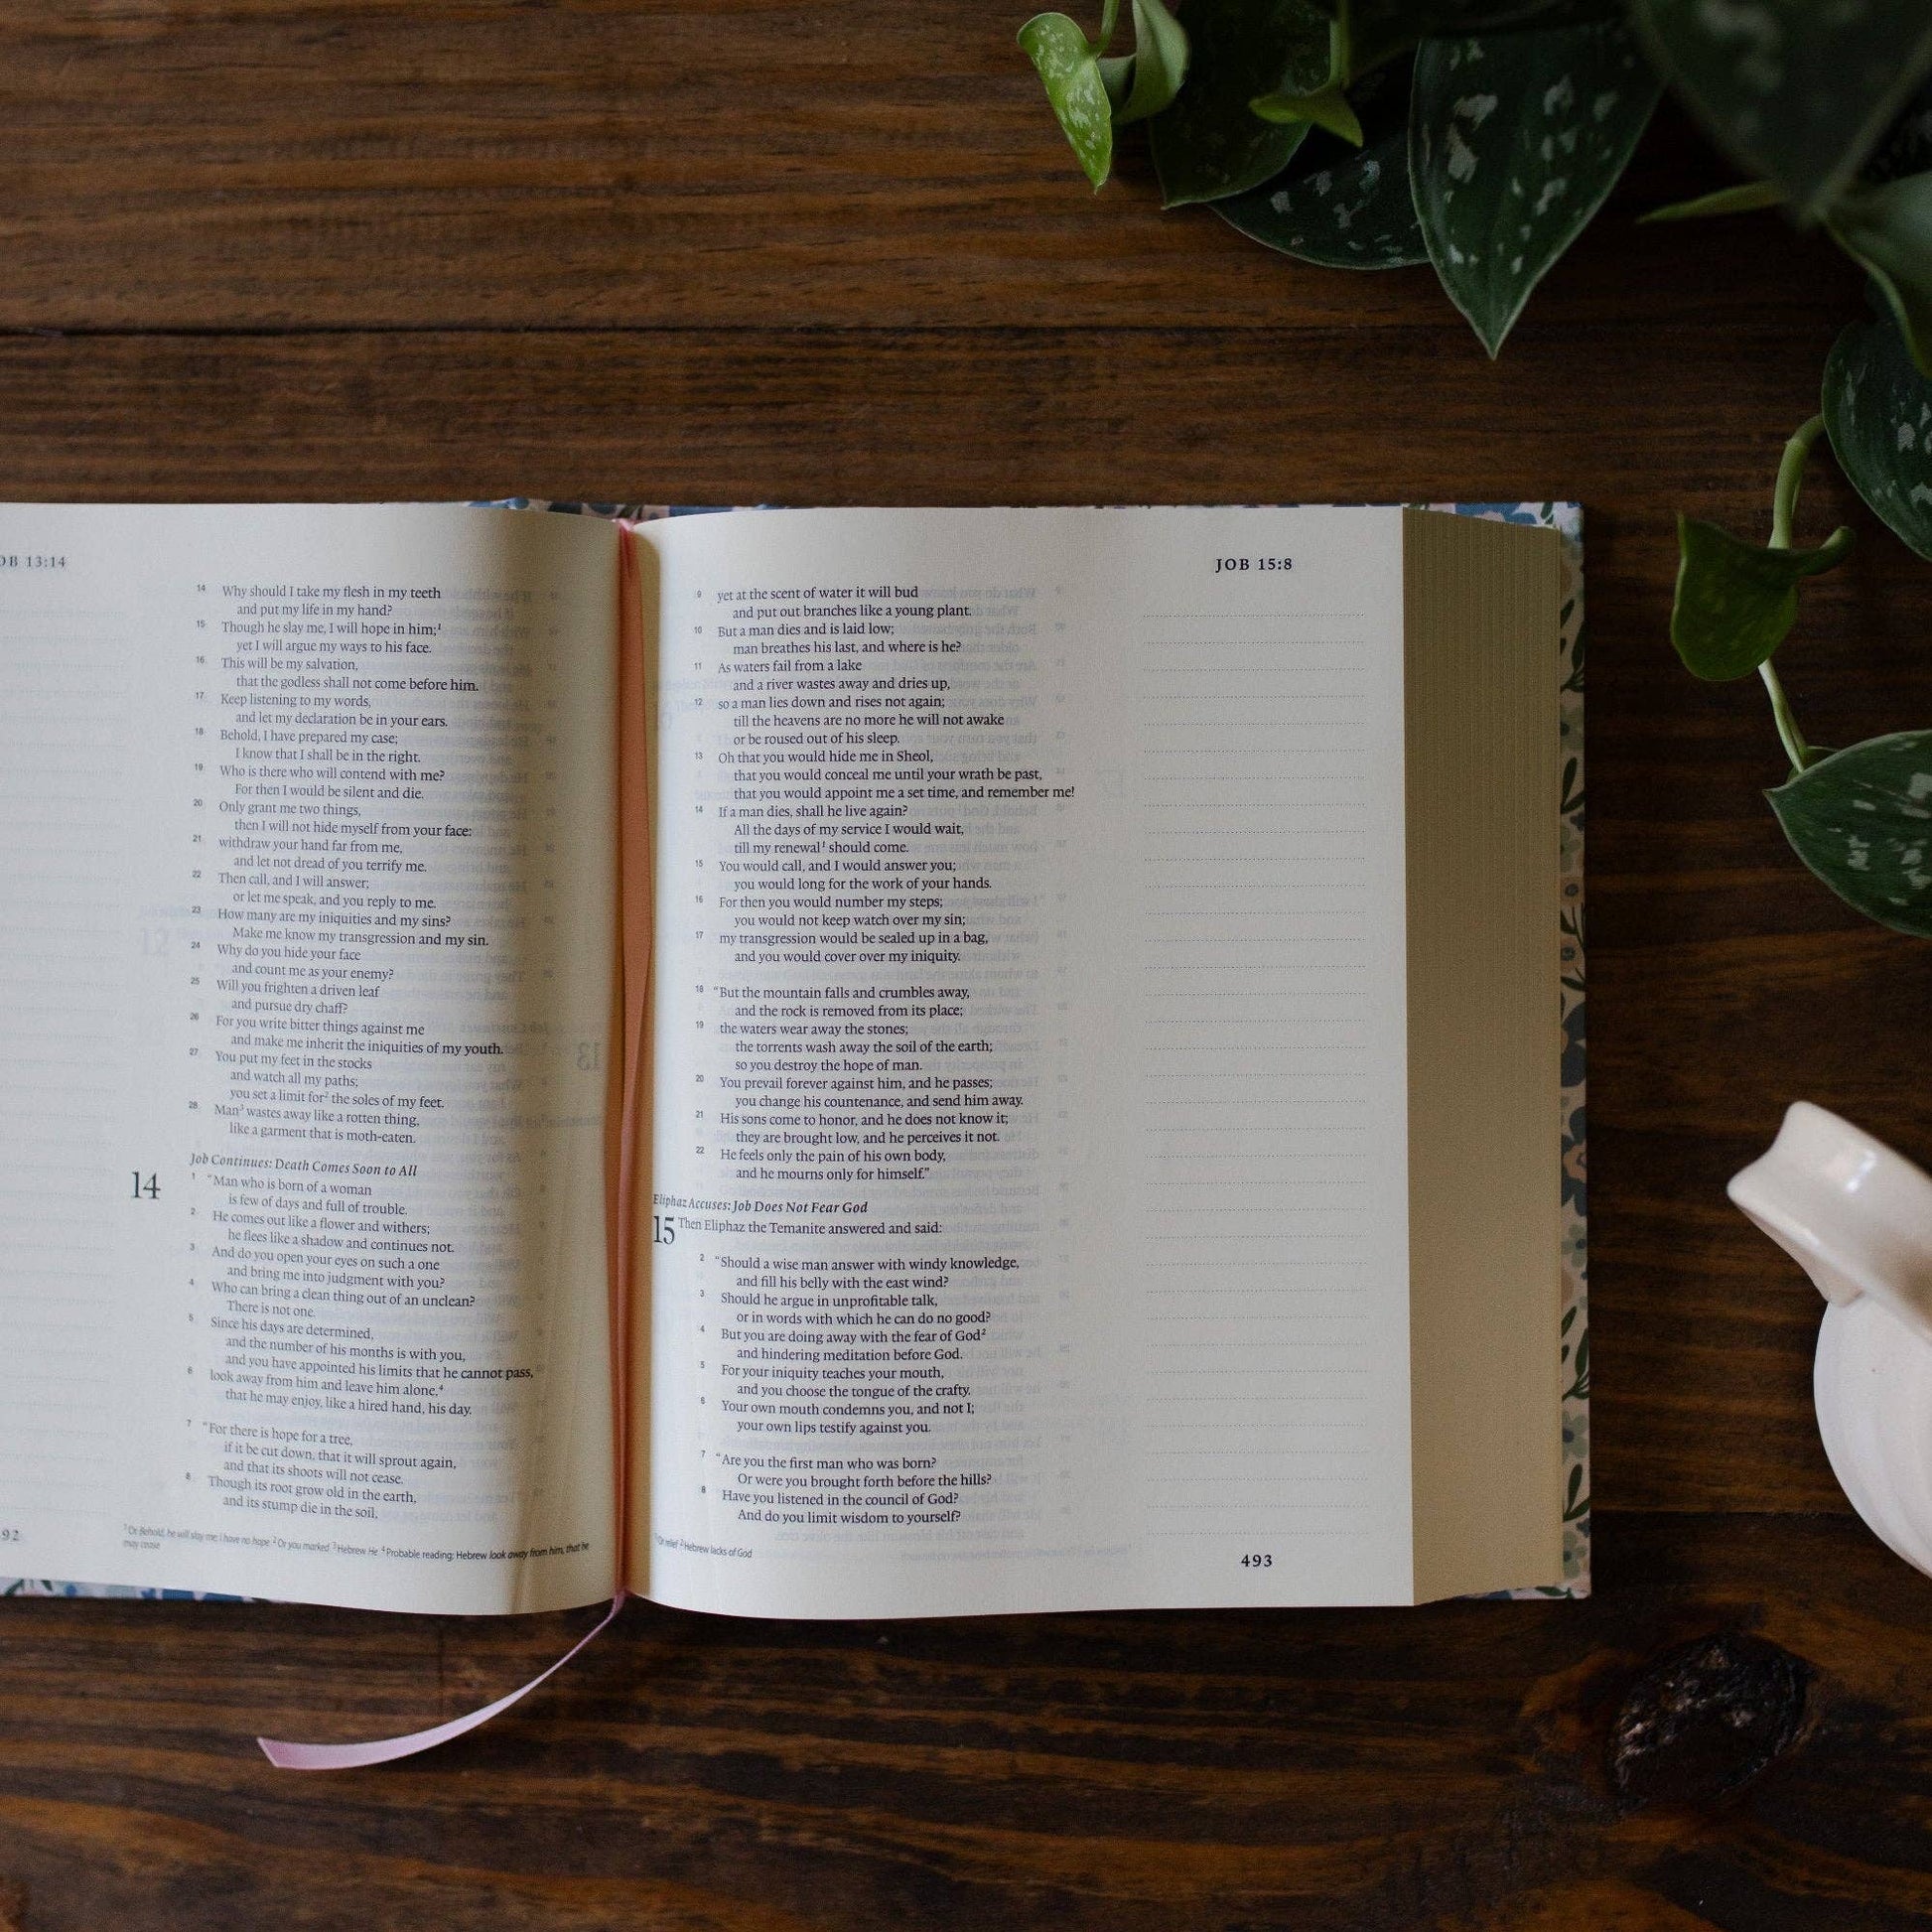 OB 13:14
14 Why should I take my flesh in my teeth
and put my life in my hand?
15 Though he slay me, I will hope in him;1
yet I will argue my ways to his face.
16 This will be my salvation,
that the godless shall not come before him.
17 Keep listening to my words,
and let my declaration be in your ears.
18 Behold, I have prepared my case;
I know that I shall be in the right.
19 Who is there who will contend with me?
For then I would be silent and die.
20 Only grant me two things,
then I will not hide myself from your face:
21 withdraw your hand far from me,
and let not dread of you terrify me.
22 Then call, and I will answer;
or let me speak, and you reply to me.
23 How many are my iniquities and my sins?
Make me know my transgression and my sin.
24 Why do you hide your face
and count me as your enemy?
25 Will you frighten a driven leaf
and pursue dry chaff?
26 For you write bitter things against me
and make me inherit the iniquities of my youth.
27 You put my feet in the stocks
and watch all my paths;
you set a limit for2 the soles of my feet.
28 Man3 wastes away like a rotten thing,
like a garment that is moth-eaten.
Job Continues: Death Comes Soon to All
14 1 “Man who is born of a woman
is few of days and full of trouble.
2 He comes out like a flower and withers;
he flees like a shadow and continues not.
3 And do you open your eyes on such a one
and bring me into judgment with you?
4 Who can bring a clean thing out of an unclean?
There is not one.
5 Since his days are determined,
and the number of his months is with you,
and you have appointed his limits that he cannot pass,
6 look away from him and leave him alone,4
that he may enjoy, like a hired hand, his day.
7 “For there is hope for a tree,
if it be cut down, that it will sprout again,
and that its shoots will not cease.
8 Though its root grow old in the earth,
and its stump die in the soil,
1 Or Behold, he will slay me; I have no hope 2 Or you marked 3 Hebrew He 4 Probable reading; Hebrew look away from him, that he
may cease
92
JOB 15:8
9 yet at the scent of water it will bud
and put out branches like a young plant.
10 But a man dies and is laid low;
man breathes his last, and where is he?
11 As waters fail from a lake
and a river wastes away and dries up,
12 so a man lies down and rises not again;
till the heavens are no more he will not awake
or be roused out of his sleep.
13 Oh that you would hide me in Sheol,
that you would conceal me until your wrath be past,
that you would appoint me a set time, and remember me!
14 If a man dies, shall he live again?
All the days of my service I would wait,
till my renewal1 should come.
15 You would call, and I would answer you;
you would long for the work of your hands.
16 For then you would number my steps;
you would not keep watch over my sin;
17 my transgression would be sealed up in a bag,
and you would cover over my iniquity.
18 “But the mountain falls and crumbles away,
and the rock is removed from its place;
19 the waters wear away the stones;
the torrents wash away the soil of the earth;
so you destroy the hope of man.
20 You prevail forever against him, and he passes;
you change his countenance, and send him away.
21 His sons come to honor, and he does not know it;
they are brought low, and he perceives it not.
22 He feels only the pain of his own body,
and he mourns only for himself.”
Eliphaz Accuses: Job Does Not Fear God
15 Then Eliphaz the Temanite answered and said:
2 “Should a wise man answer with windy knowledge,
and fill his belly with the east wind?
3 Should he argue in unprofitable talk,
or in words with which he can do no good?
4 But you are doing away with the fear of God2
and hindering meditation before God.
5 For your iniquity teaches your mouth,
and you choose the tongue of the crafty.
6 Your own mouth condemns you, and not I;
your own lips testify against you.
7 “Are you the first man who was born?
Or were you brought forth before the hills?
8 Have you listened in the council of God?
And do you limit wisdom to yourself?
1 Or relief 2 Hebrew lacks of God
493